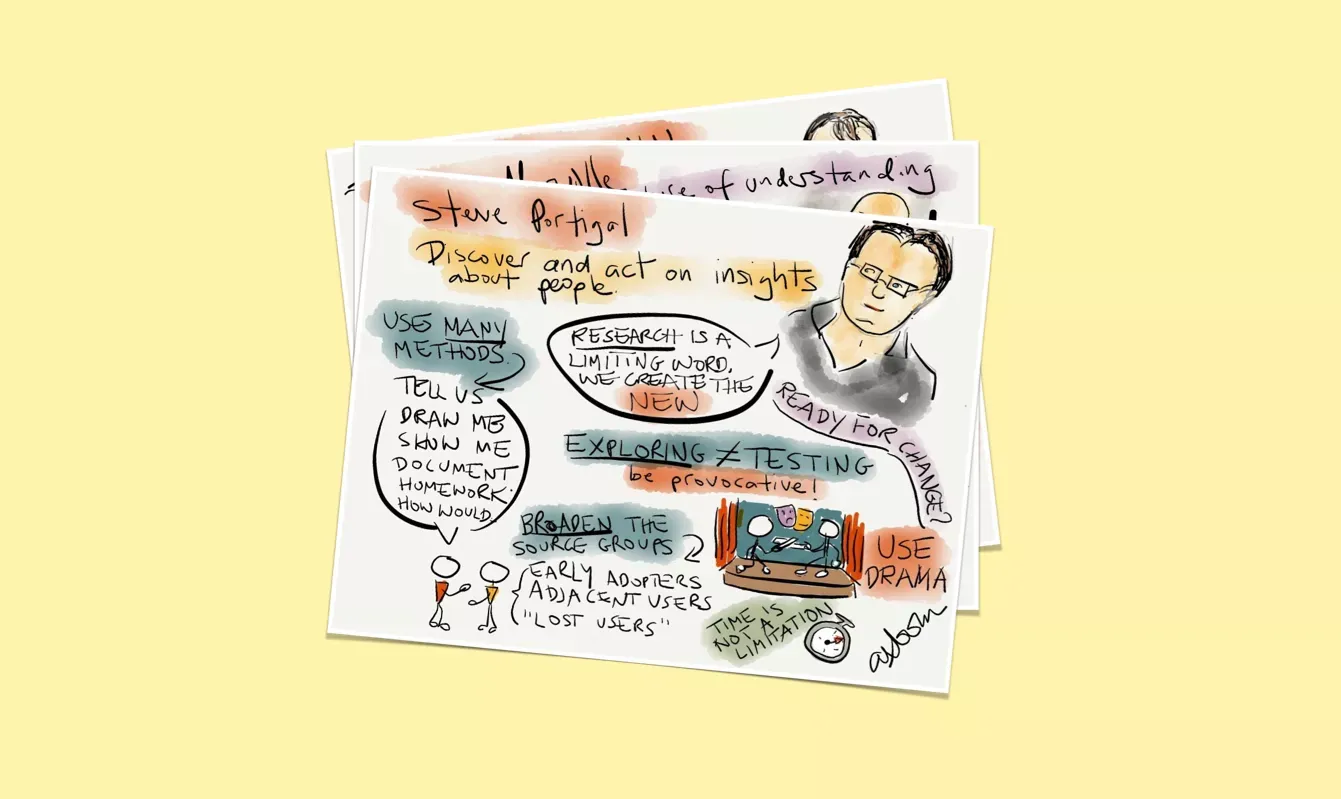 of understanding
Steve Portigal
Discover and act on insights
about people.
USE MANY
METHODS.
TELL US
DRAW ME
SHOW ME
DOCUMENT
HOMEWORK.
HOW WOULD.
RESEARCH IS A
LIMITING WORD.
WE CREATE THE
NEW
READY FOR CHANGE?
EXPLORING ≠ TESTING
be provocative!
BROADEN THE
SOURCE GROUPS
EARLY ADOPTERS
ADJACENT USERS
"LOST USERS"
USE
DRAMA
TIME IS
NOT A
LIMITATION
axbom